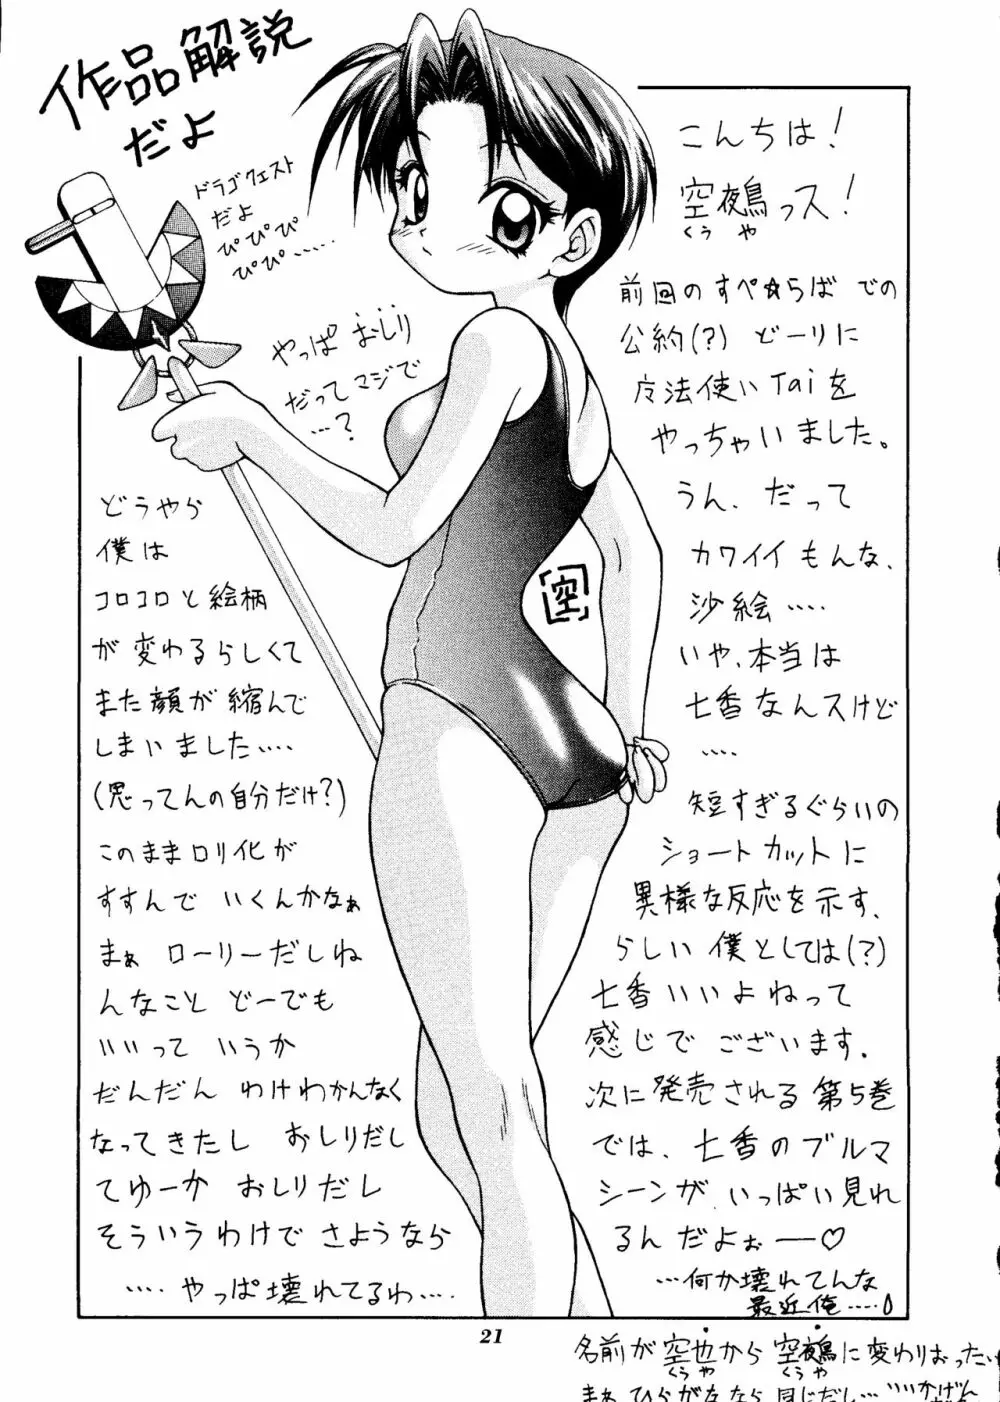 作品解説
だよ
ドラゴクエスト
だよ
ぴぴぴ
ぴぴ・・・・・
やっぱ おしり
だってマジで
・・・?
こんちは!
空鵺っス!
くう や
前回のすぺ☆らば での
公約(?) どーりに
魔法使いTaiを
やっちゃいました。
うん、だって
カワイイもんな、
沙絵・・・・
いや、本当は
七香なんスけど
・・・・
短すぎるぐらいの
ショートカットに
異様な反応を示す、
らしい僕としては(?)
七香いいよねって
感じでございます。
次に発売される第5巻
では、七香のブルマ
シーンが、いっぱい見れ
るんだよぉ──♡
・・・何か壊れてんな
最近俺・・・・
どうやら
僕は
コロコロと絵柄
が変わるらしくて
また顔が縮んで
しまいました・・・・
(思ってんの自分だけ?)
このままロリ化が
すすんでいくんかなぁ
まぁ ローリーだしね
んなこと どーでも
いいって いうか
だんだん わけわかんなく
なってきたし おしりだし
てゆーか おしりだし
そういうわけで さようなら
・・・・やっぱ壊れてるわ・・・・
空
21
名前が空也から空鵺に変わりおった
くうや くうや
まぁひらがななら同じだし・・・いいかげん